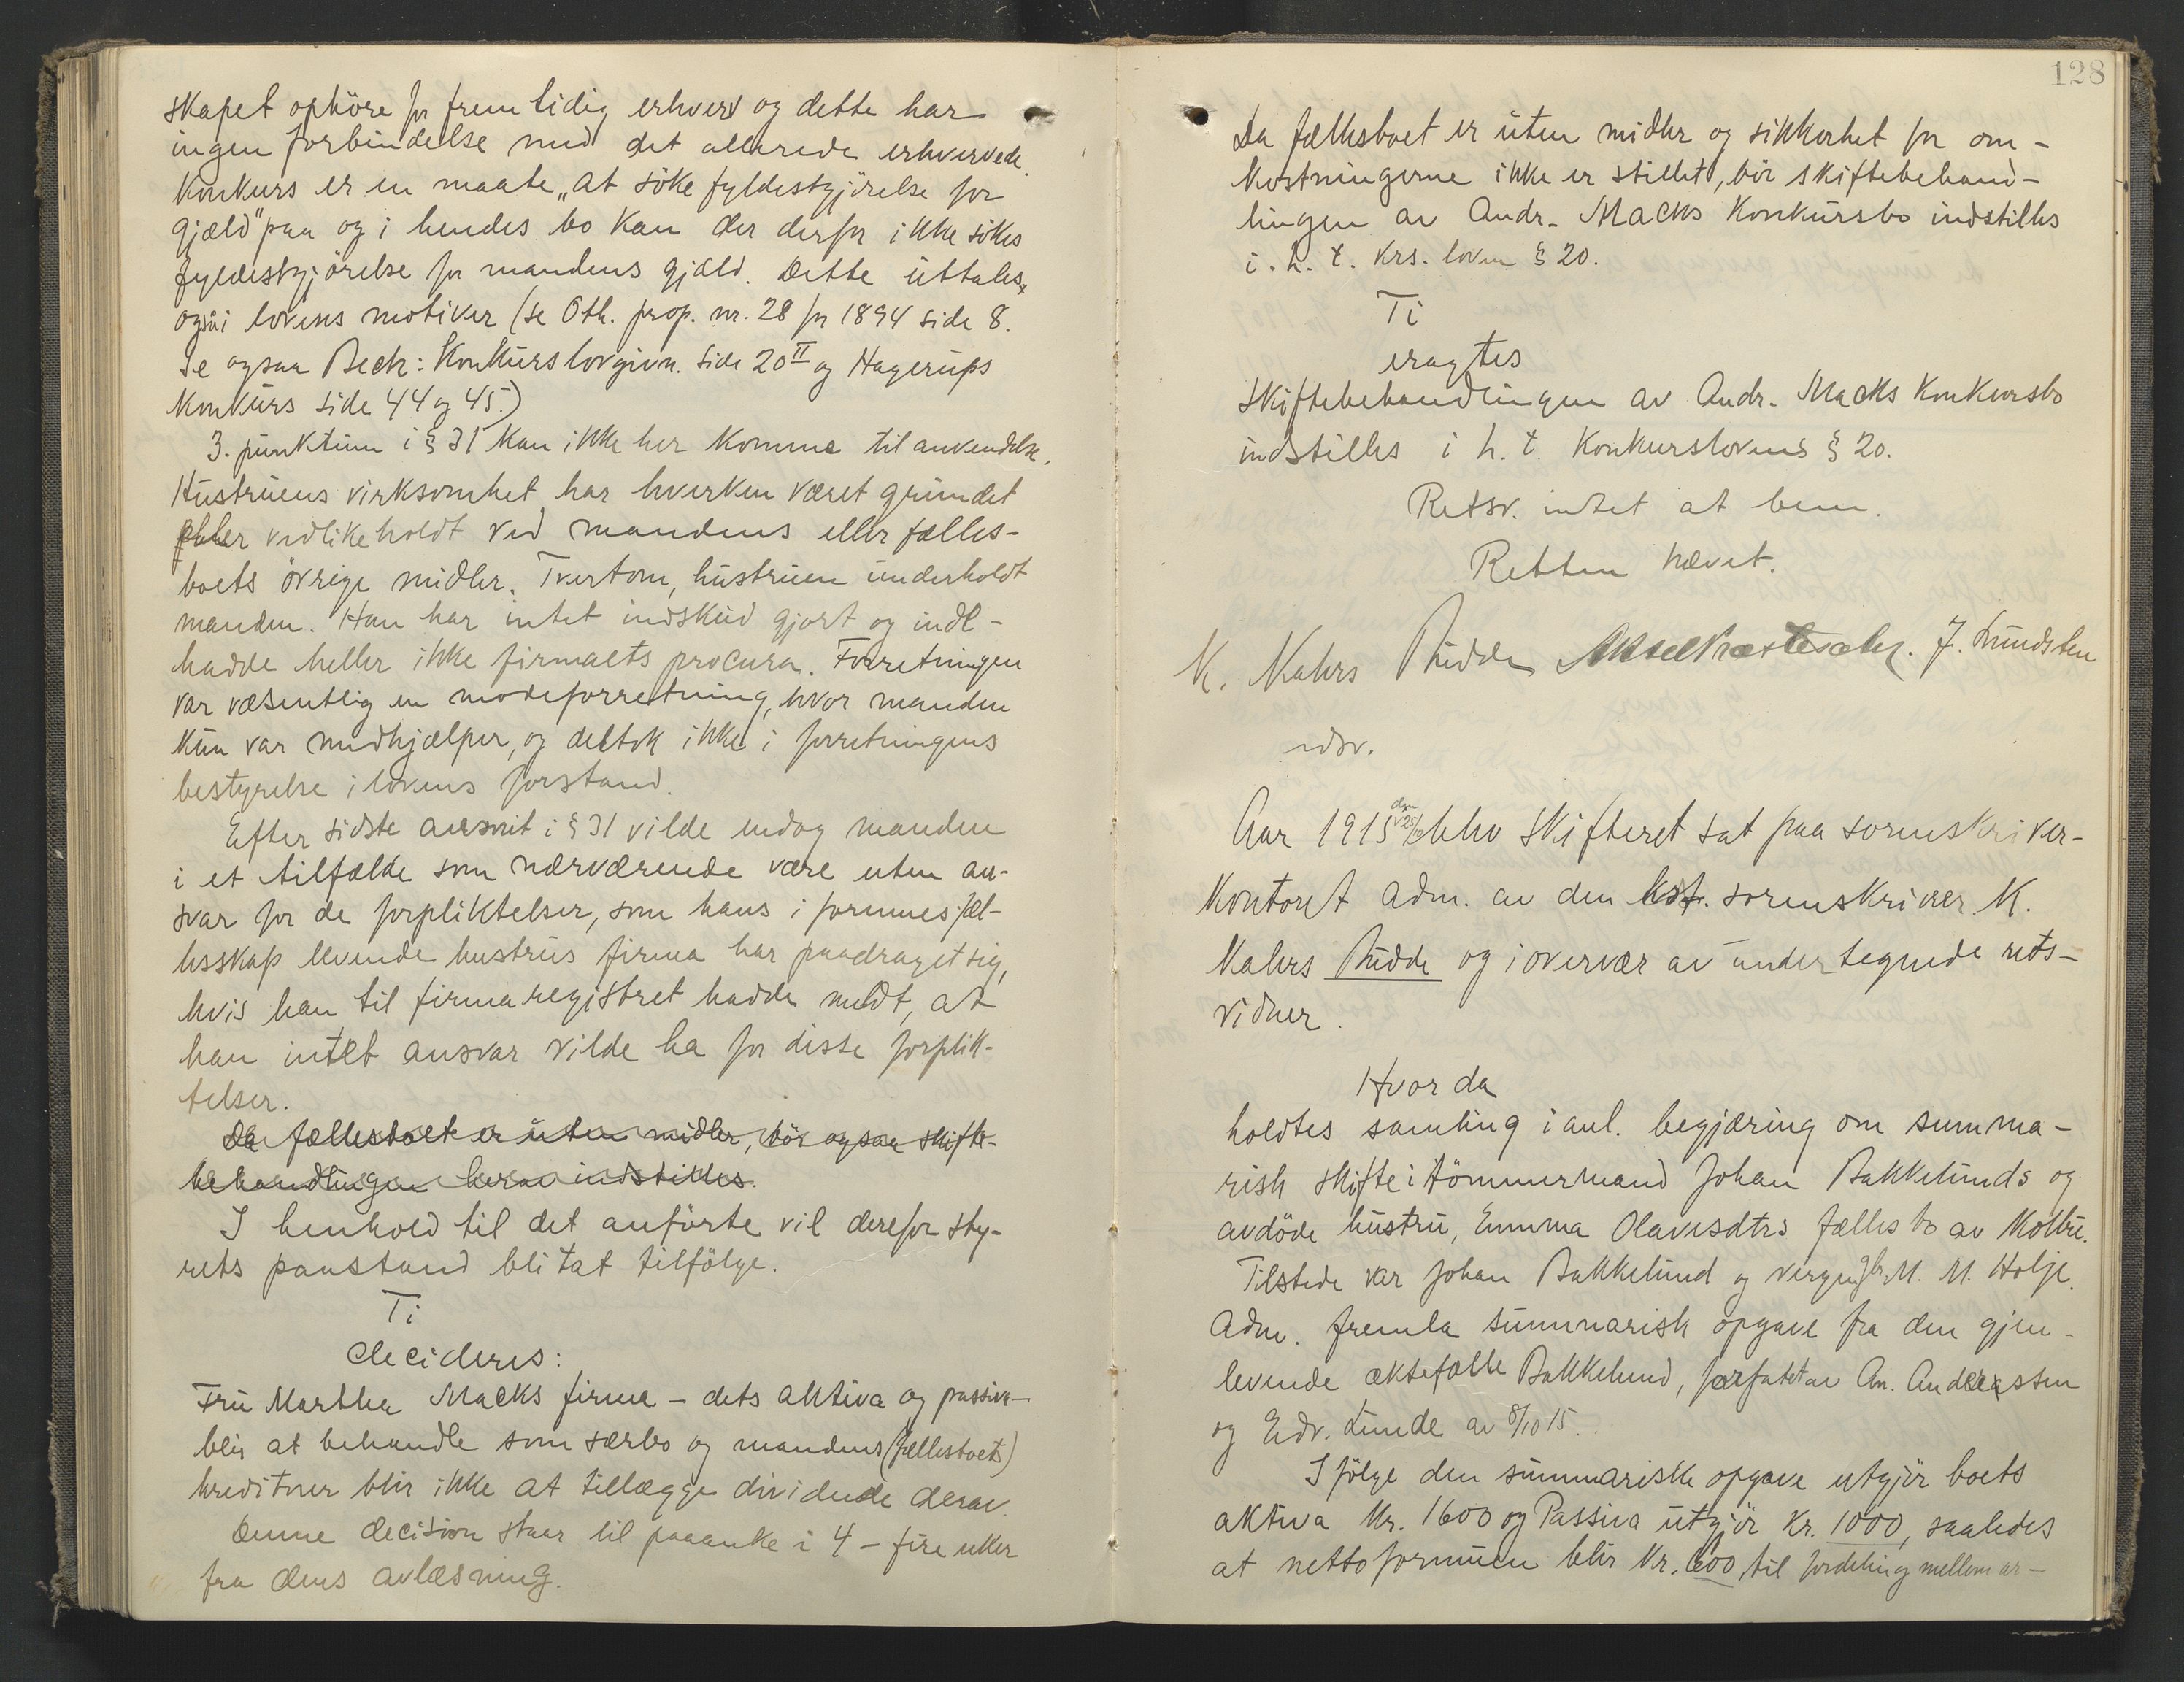 skapet ophöre for fremtidig erhverv og dette har
ingen forbindelse med det allerede erhvervede.
Konkurs er en maate „at söke fyldestgjörelse for
gjæld" paa og i hendes bo kan der derfor ikke sökes
fyldestgjörelse for mandens gjæld. Dette uttales
også i lovens motiver (se Oth. prop. nr. 28 for 1894 side 8.
Se ogsaa Beck: Konkurslovgivn. side 20 II og Hagerups
Konkurs side 44 og 45.)
3. punktum i § 31 kan ikke her komme til anvendelse.
Hustruens virksomhet har hverken været grundet
eller vedlikeholdt ved mandens eller fælles-
boets övrige midler. Tvertom, hustruen underholdt
manden. Han har intet indskud gjort og indl-
hadde heller ikke firmaets procura. Forretningen
var væsentlig en modeforretning, hvor manden
kun var medhjælper, og deltok ikke i forretningens
bestyrelse i lovens forstand.
Efter sidste avsnit i § 31 vilde endog manden
i et tilfælde som nærværende være uten an-
svar for de forpliktelser, som hans i formuesfæl-
lesskap levende hustrus firma har paadraget sig,
hvis han til firmaregistret hadde meldt, at
han intet ansvar vilde ha for disse forplik-
telser.
Da fællesboet er uten midler, bör ogsaa skifte-
behandlingen herav indstilles.
I henhold til det anförte vil derefor sty-
rets paastand bli tat tilfölge.
Ti
decideres:
Fru Martha Macks firma - dets aktiva og passiva -
blir at behandle som særbo og mandens (fællesboets)
kreditorer blir ikke at tillægge dividende derav.
Denne decision staar til paaanke i 4 - fire uker
fra dens avlæsning.
128
Da fællesboet er uten midler og sikkerhet for om-
kostningerne ikke er stillet, bör skiftebehand-
lingen av Andr. Macks Konkursbo indstilles
i. h. t. krs. loven § 20.
Ti
eragtes
Skiftebehandlingen av Andr. Macks Konkursbo
indstilles i h. t. Konkurslovens § 20.
Retsv. intet at bem.
Retten hævet.
K. Kahrs Budde J. Lundsten
Aar 1915 den 25/10 blev skifteret sat paa sorenskriver-
kontoret adm. av den kst. sorenskriver K.
Kahrs Budde og i overvær av undertegnede rets-
vidner.
Hvor da
holdtes samling i anl. begjæring om summa-
risk skifte i tömmermand Johan Bakkelunds og
avdöde hustru, Emma Olavesdtrs fællesbo av Moltu.
Tilstede var Johan Bakkelund og vergen gbr. M. M. Holje.
Adm. fremla summarisk opgave fra den gjen-
levende æktefælle Bakkelund, forfattet av An. Andreassen
og Edv. Lunde av 8/10 15.
Ifölge den summariske opgave utgjör boets
aktiva kr. 1600 og Passiva utgjör kr. 1000, saaledes
at nettoformuen blir kr. 600 til fordeling mellem ar-